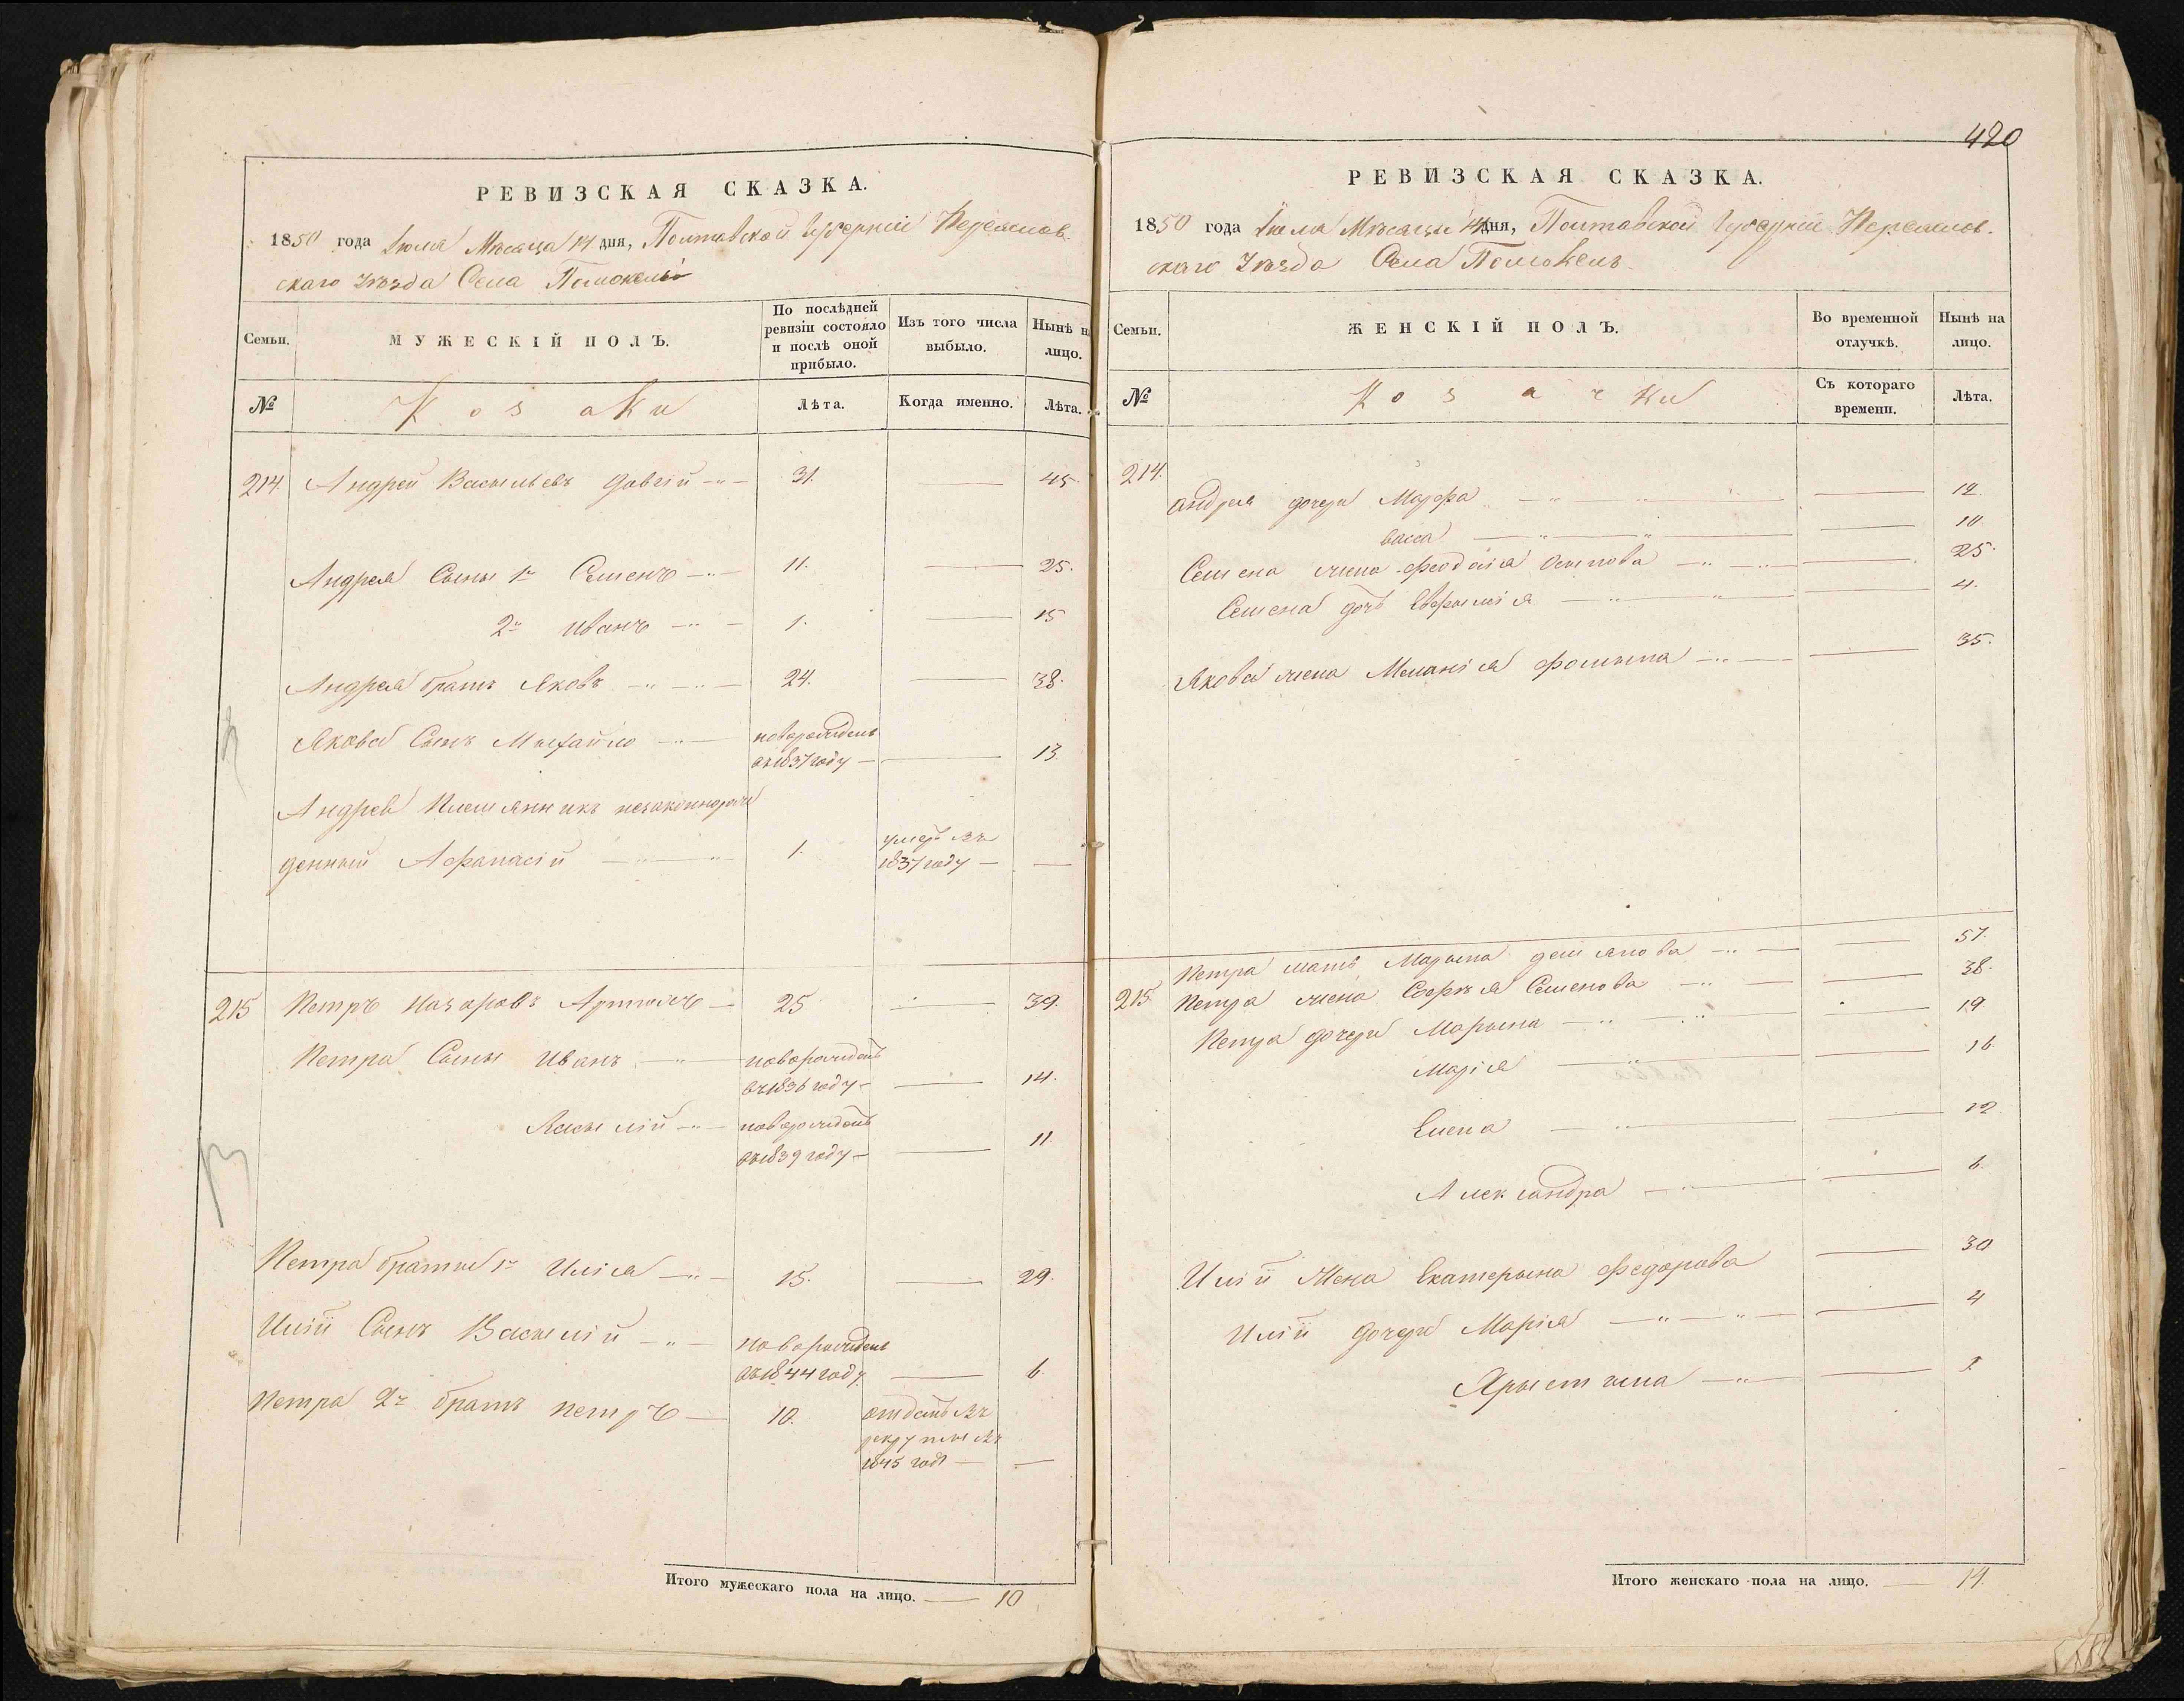 РЕВИЗСКАЯ СКАЗКА.
1850 года Іюля Мѣсяца 14 дня, Полтавской Губерніи Переяслов-
скаго Уѣзда Села Помокель
Семьи. МУЖЕСКІЙ ПОЛЪ. По послѣдней ревизіи состояло и послѣ оной прибыло. Изъ того числа выбыло. Нынѣ на лицо.
№ Козаки Лѣта. Когда именно. Лѣта.
214. Андрей Васильевъ Довгій 31. 45
Андрея Сыны 1й Семенъ 11. 25.
2й Иванъ 1. 15
Андрея братъ Яковъ 24. 38.
Якова Сынъ Михайло новорожденъ
въ 1837 году 13
Андрея Племянникъ незаконнорож
денный Афанасій 1. умеръ въ
1837 году
215 Петръ Назаровъ 25 39.
Петра Сыны Иванъ новорожденъ
въ 1836 году 14.
Василій новорожденъ
въ 1839 году 11.
Петра братья 1й Илія 15. 29.
Иліи Сынъ Василій новорожденъ
въ 1844 году 6.
Петра 2й братъ Петръ 10. отданъ въ
рекруты въ
1845 годѣ
Итого мужескаго пола на лицо. 10
420
РЕВИЗСКАЯ СКАЗКА.
1850 года Іюля Мѣсяца 14 дня, Полтавской Губерніи Переяслов-
скаго Уѣзда Села Помокель
Семьи. ЖЕНСКІЙ ПОЛЪ. Во временной отлучкѣ. Нынѣ на лицо.
№ Козачки Съ котораго времени. Лѣта.
214.
Андрея дочери Марфа 12.
Васса 10
Семена жена Феодосія Осипова 25.
Семена дочь Евфимія 4.
Якова жена Меланія Фомина 35.
Петра мать Марина Демянова 57.
215 Петра жена Софія Семенова 38.
Петра дочери Марина 19
Марія 16.
Елена 12
Александра 6.
Иліи Жена Екатерина Федорова 30
Иліи дочери Марія 4
Христина
Итого женскаго пола на лицо. 14.